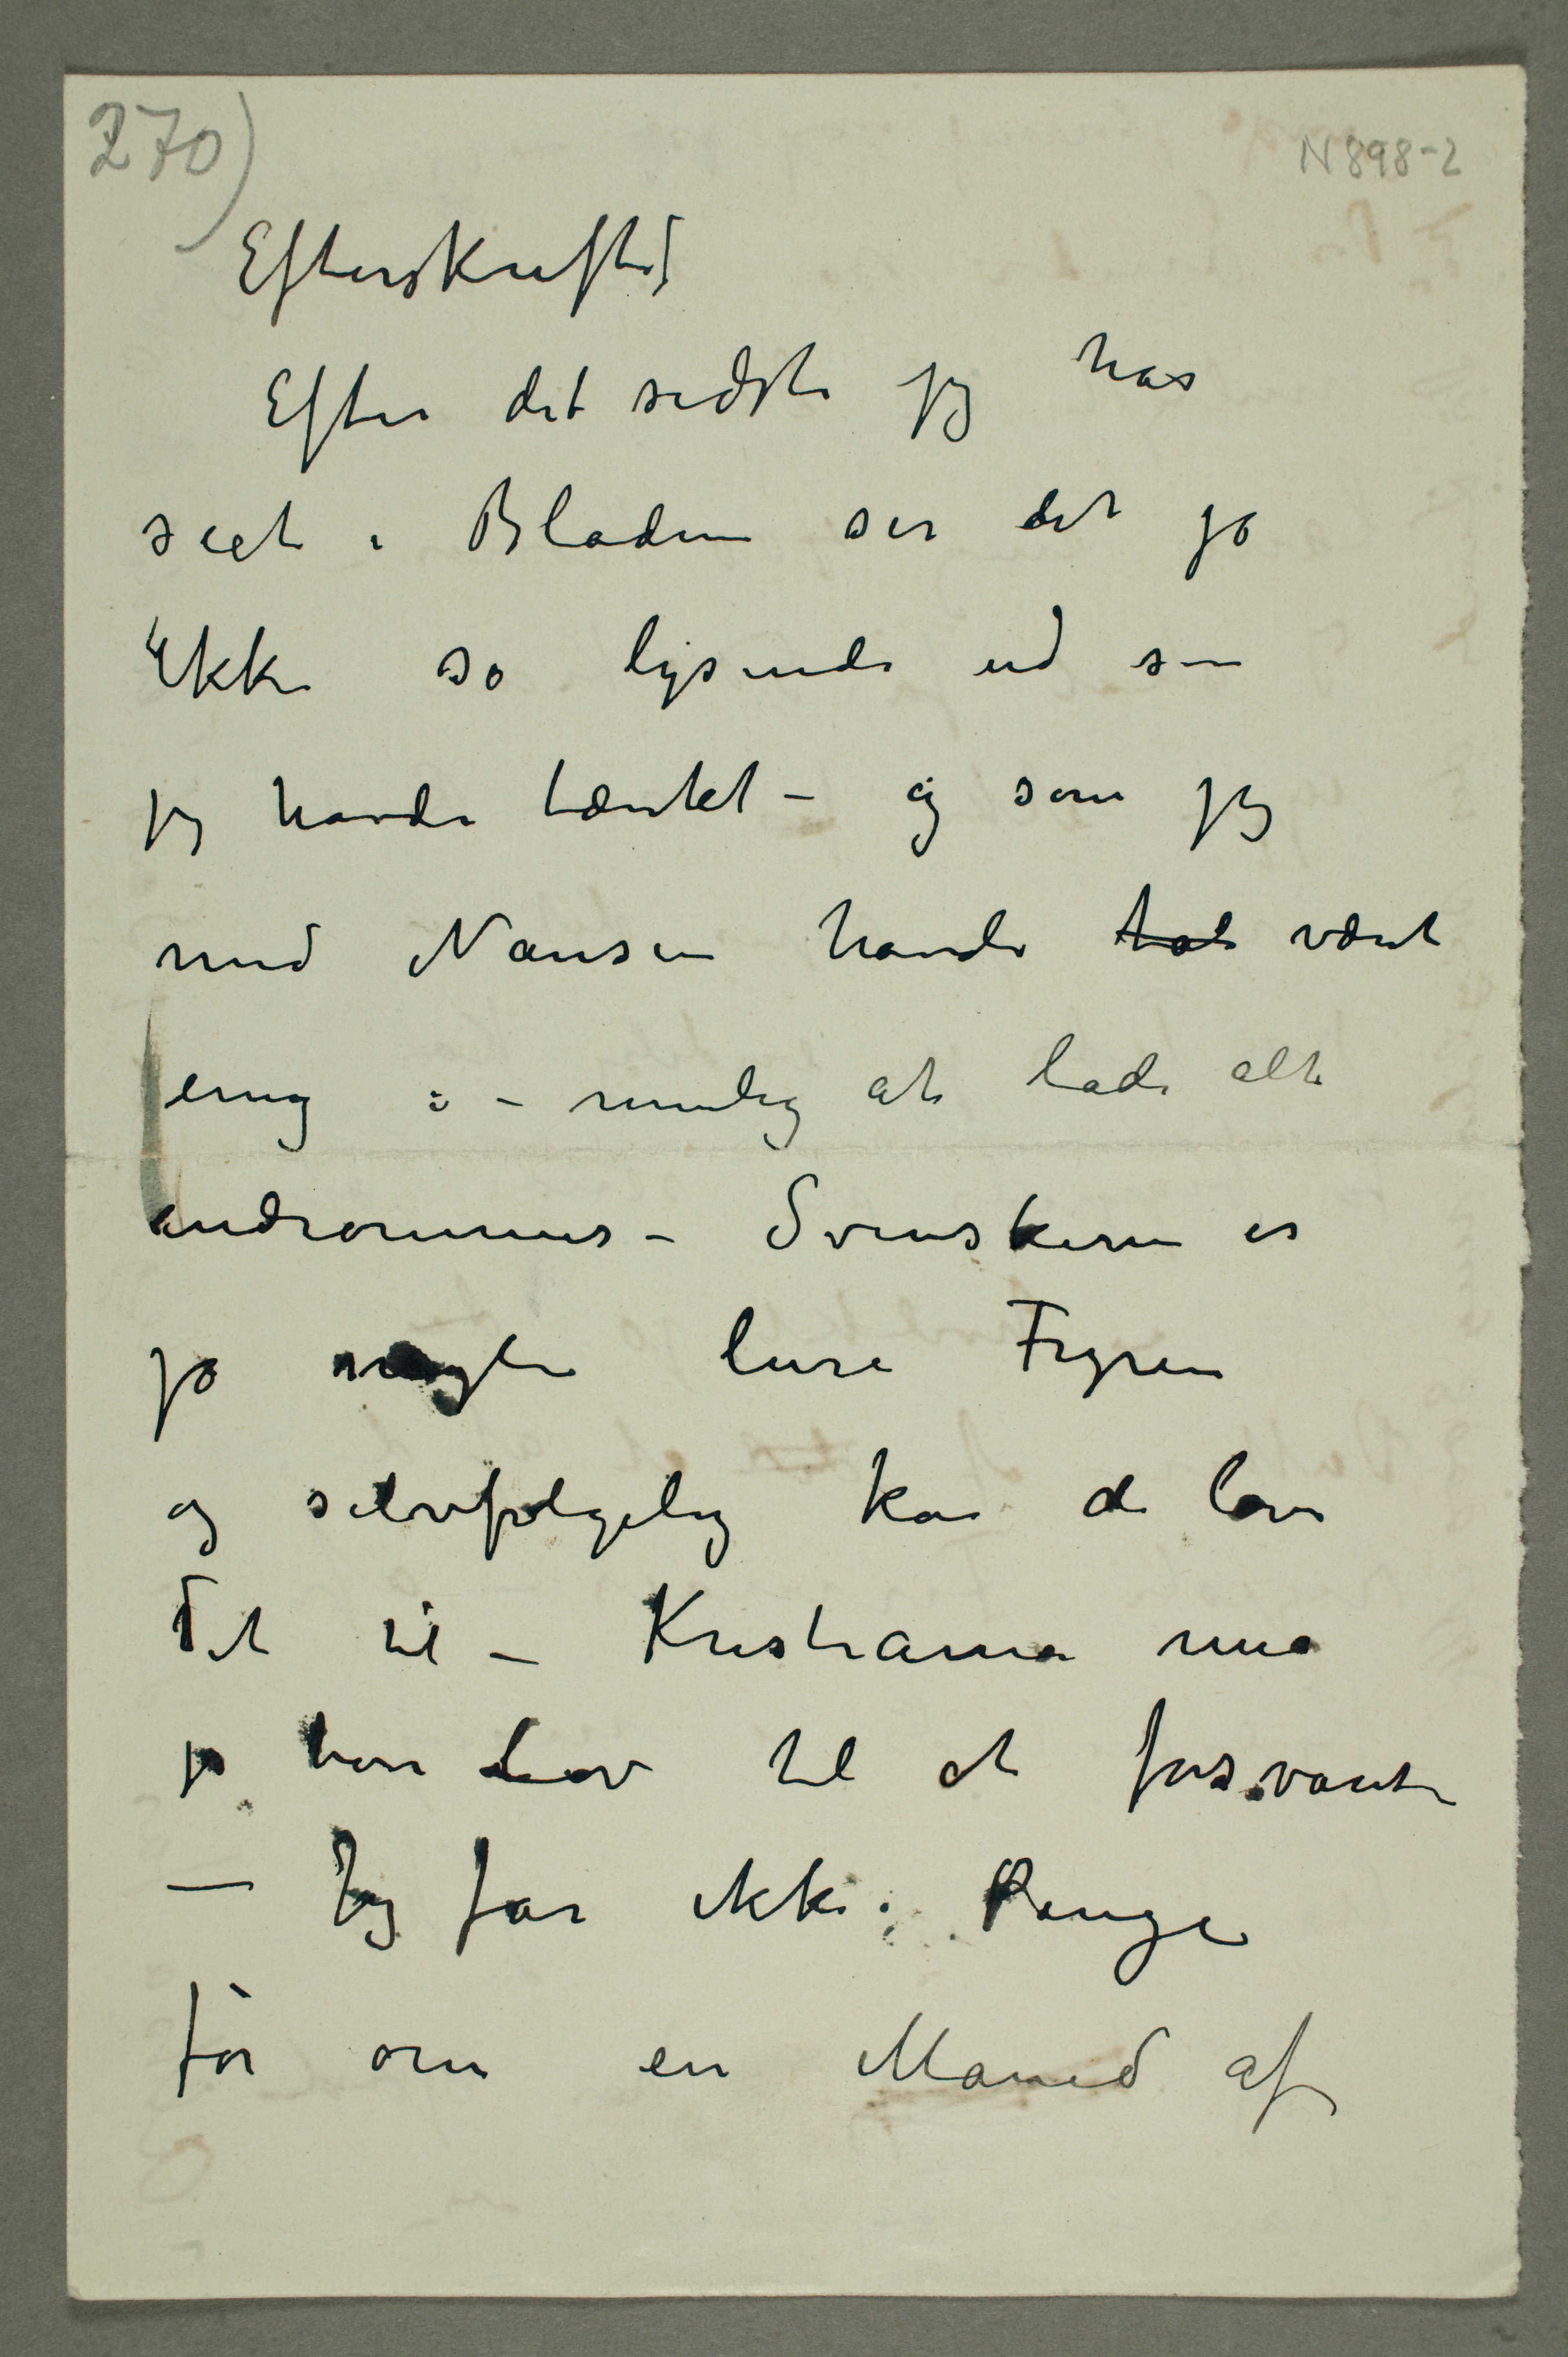 270)
N 898-2
Efterskrift
Efter det sidste jeg har
seet i Bladene ser det jo
ikke så lysende ud som
jeg havde tænkt – og som jeg
med Nansen havde tal været
enig i – nemlig at lade alt
indrømmes – Svenskerne er
jo nogle lure Fyren
og selvfølgelig kan de lave
det til – Kristiania må
jo have Lov til at forsvare
– Jeg får ikke Penge
før om en Måned af